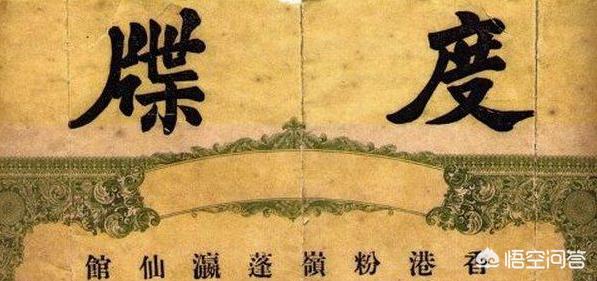 度牒
香港粉嶺蓬瀛仙館
悟空问答